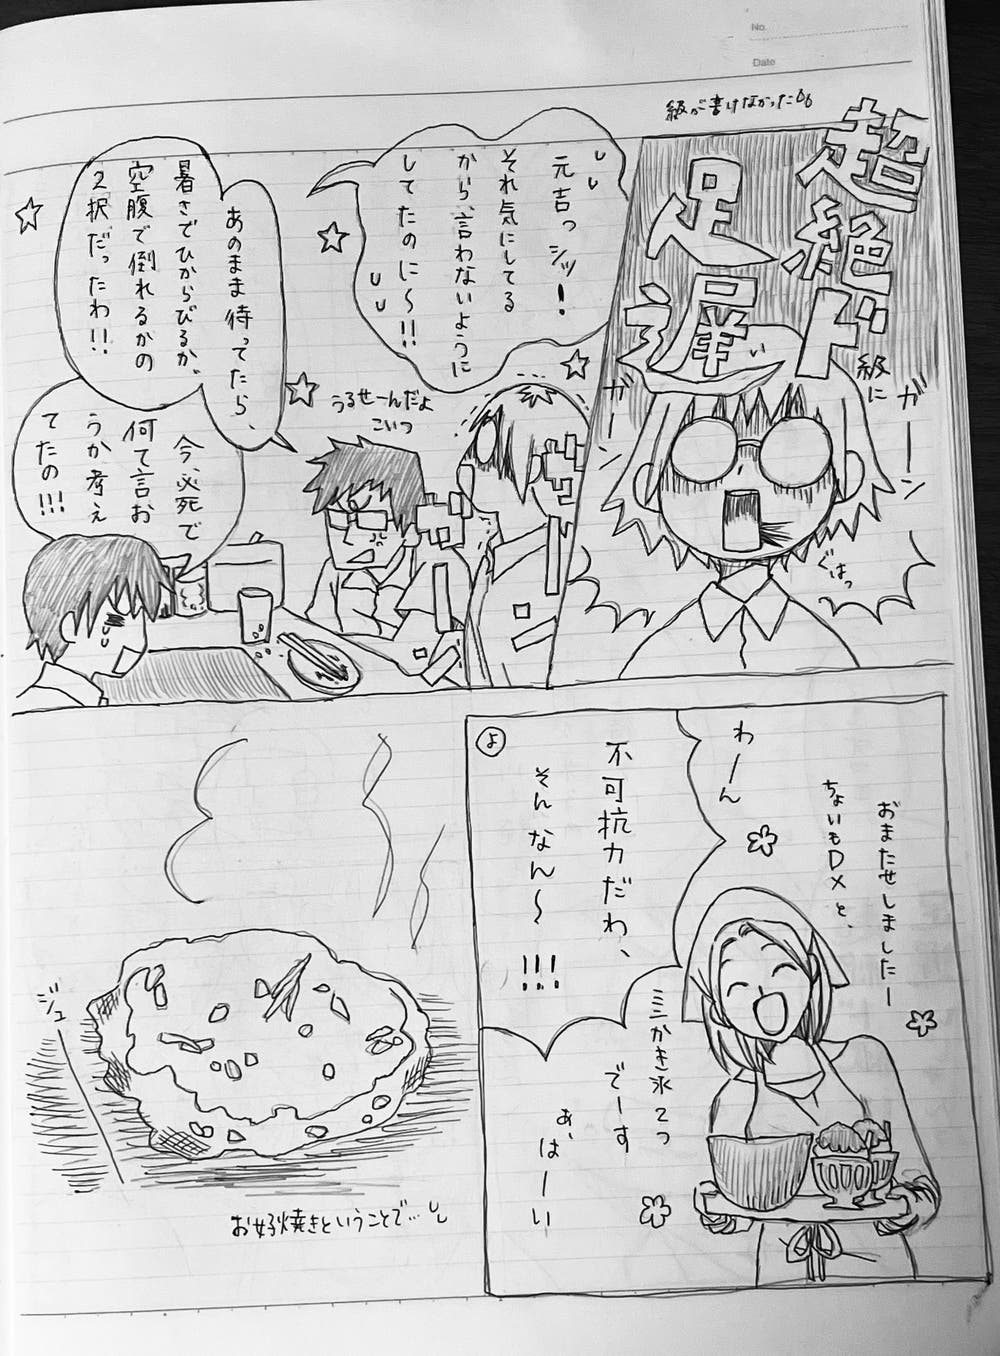 No.
Date
級が書けなかった
超絶ド
級に
足遅い
ガーーン
ガーン
ぐはっ
元吉っ シッ!
それ気にしてる
から、言わないように
してたのに〜!!
あのまま待ってたら、
暑さでひからびるか、
空腹で倒れるかの
2択だったわ!!
うるせーんだよ
こいつ
今、必死で
何て言お
うか考え
てたの!!!
おまたせしましたー
ちょいもDXと、
ミニかき氷2つ
でーす
わーん
不可抗力だわ、
そんなん〜!!!
よ
あ、はーーい
ジューー
お好焼きということで…